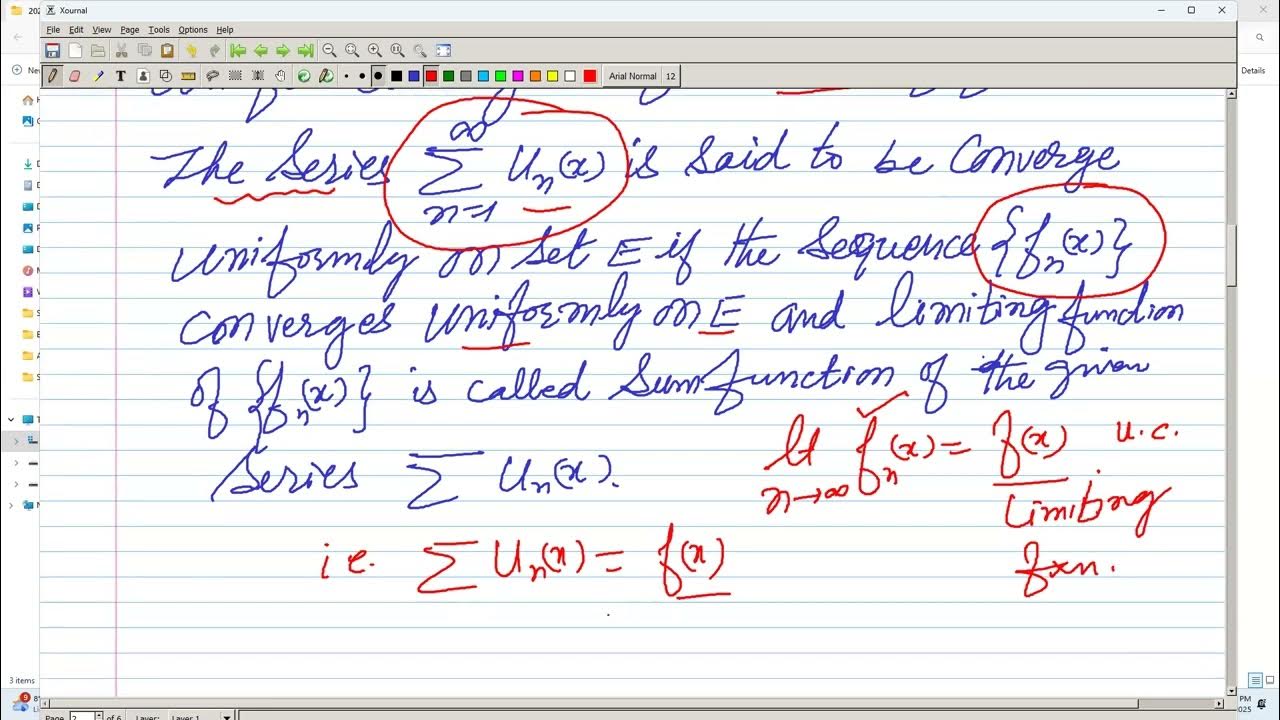 202
Xournal
File Edit View Page Tools Options Help
Arial Normal 12
Details
The Series ∞ ∑ n=1 Un(x) is said to be Converge
Uniformly on Set E if the Sequence {fn(x)}
Converges Uniformly on E and limiting function
of {fn(x)} is called Sum function of the given
Series ∑ Un(x).
lt n→∞ fn(x) = f(x) u.c.
Limiting
fxn.
i.e. ∑ Un(x) = f(x)
3 items
9
Page 2 of 6 Layer: Layer 1
PM